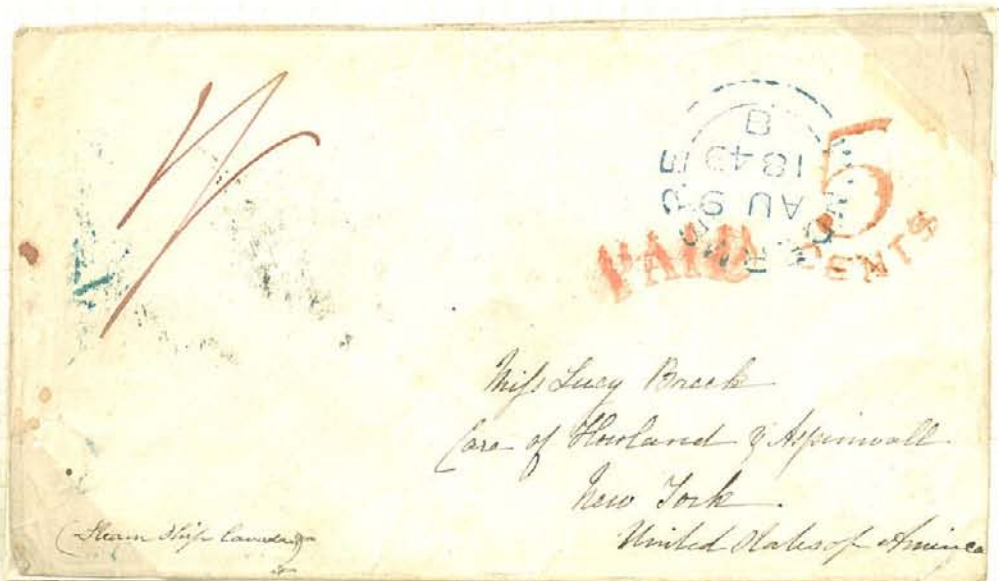 B
1849
AU 9
5
CENTS
PAID
Miss Lucy Brack
Care of Howland & Aspinwall
New York
United States of America
(Steam Ship Canada)